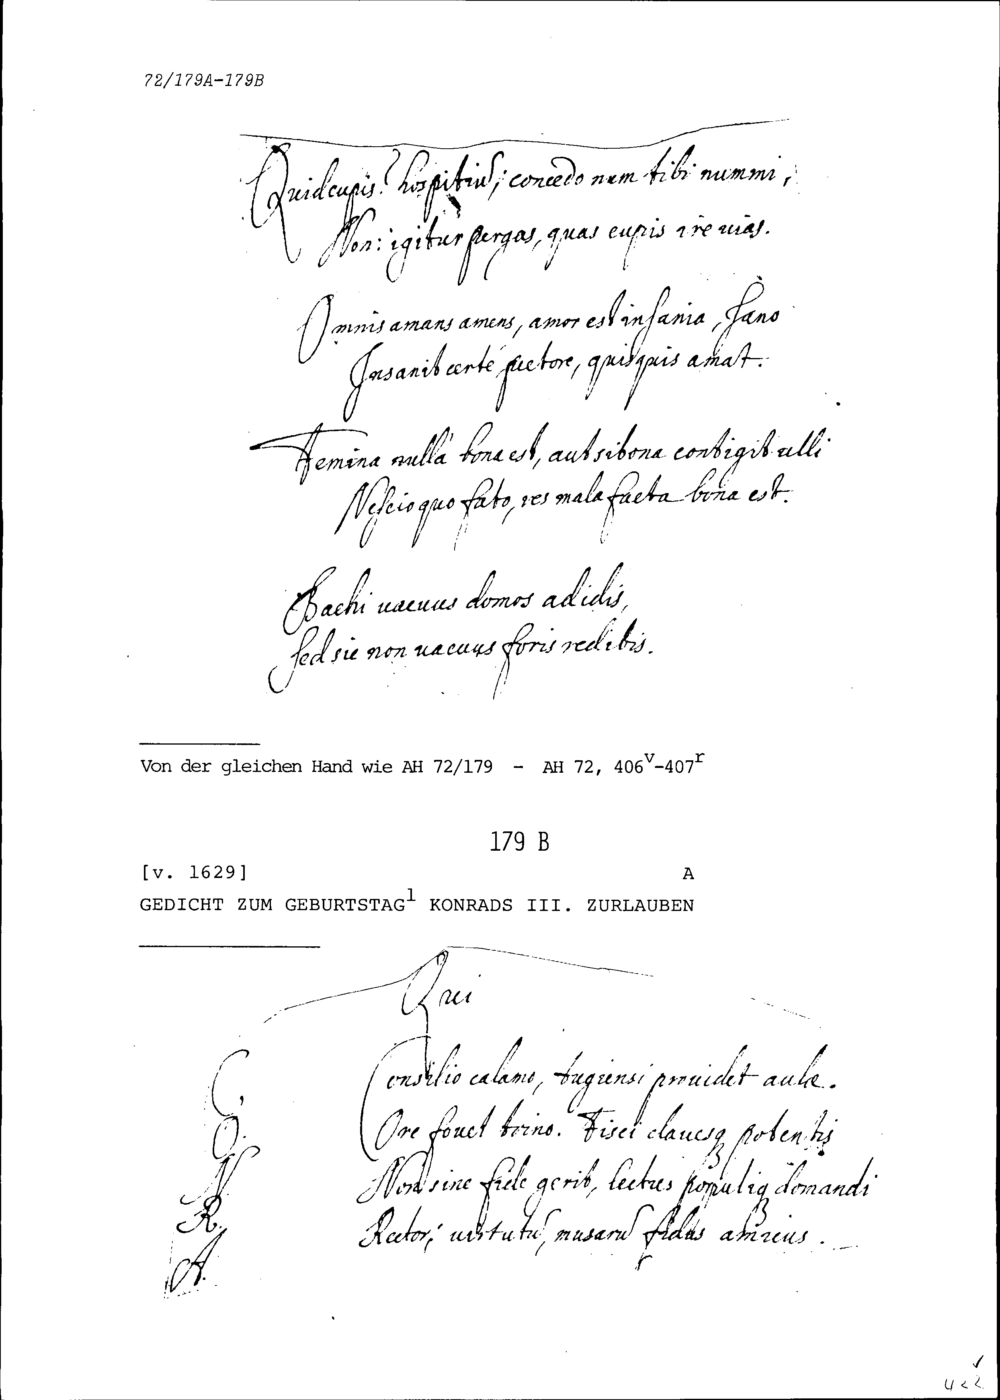 72/179A-179B
Quid cupis? hospitiũ; concedo num tibi nummi,
Non: igitur pergas, quas cupis ire uias.
Omnis amans amens, amor est insania, sano
Insanit certe pectore, quisquis amat.
Femina nulla bona est, aut si bona contigit ulli
Nescio quo fato, res mala facta bona est.
Bachi uacuus domos adidis,
sed sic non uacuus foris redibis.
Von der gleichen Hand wie AH 72/179 - AH 72, 406v-407r
179 B
[v. 1629] A
GEDICHT ZUM GEBURTSTAG1 KONRADS III. ZURLAUBEN
Qui
C. Consilio calamo, tugiensi prouidet aulæ.
O. Ore fouet trino. Fisci clauesq potentis
N. Non sine fide gerit, lectus populiq domandi
R. Rector; uirtutũ, musarũ fidus amicus.
A.